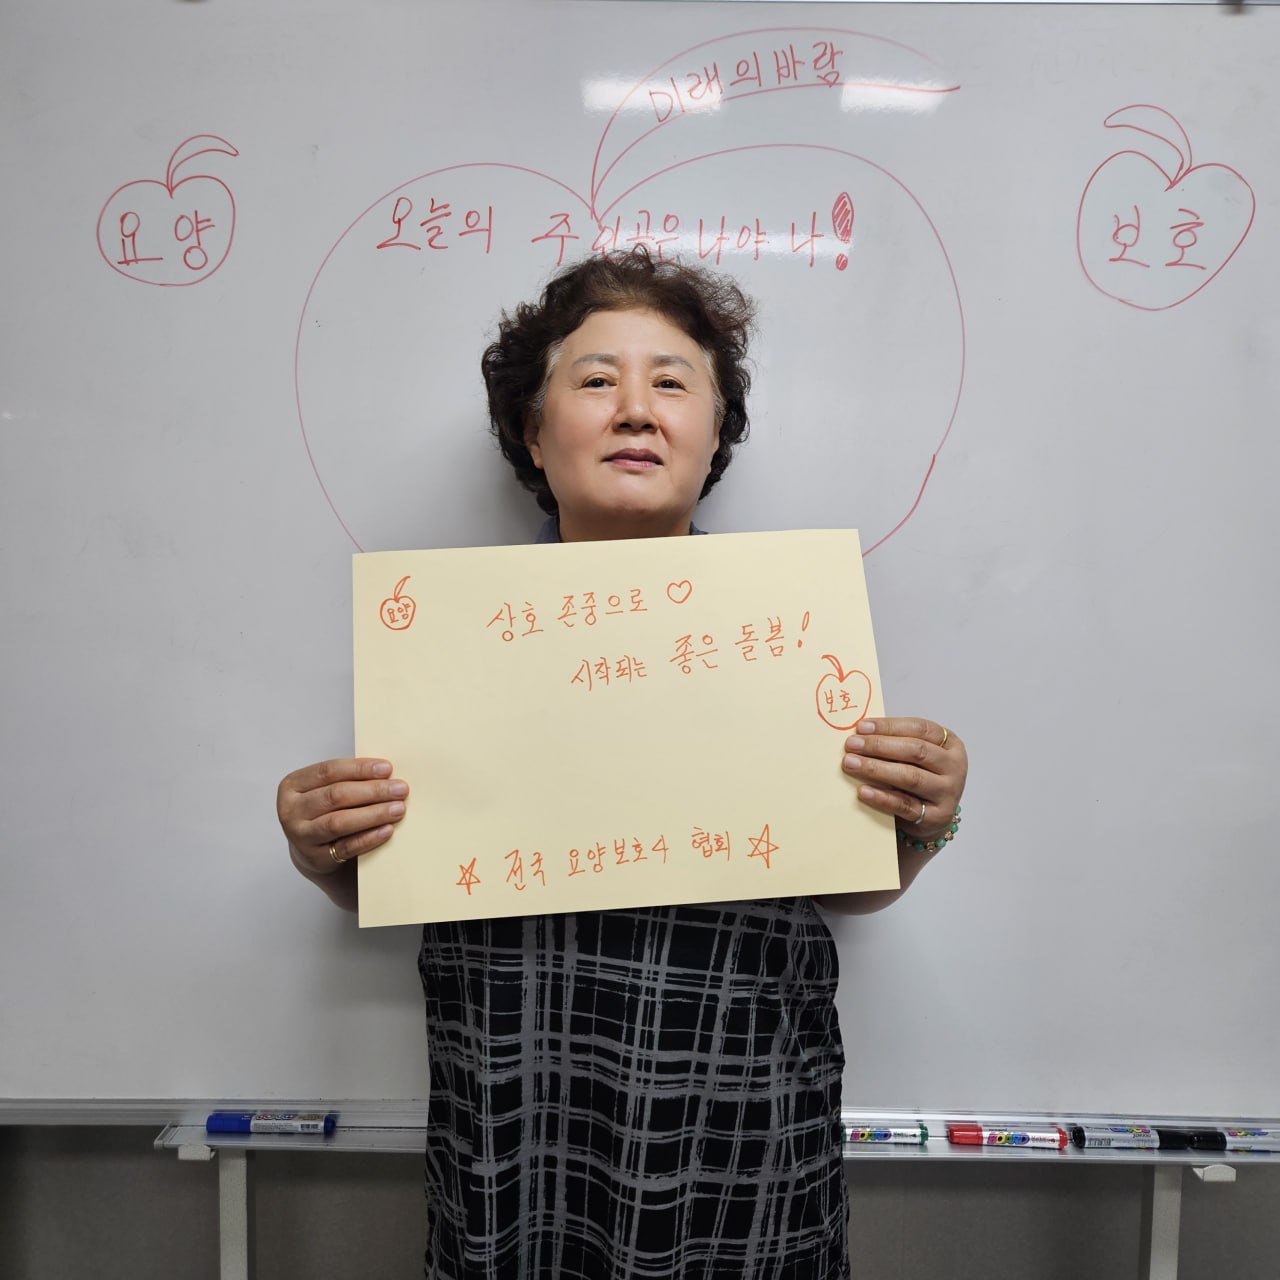 미래의바람
오늘의 주인공은 나야 나!
요양
보호
요양
상호 존중으로 ♡
시작되는 좋은 돌봄!
보호
☆ 전국 요양보호사 협회 ☆
BOARD
BOARD